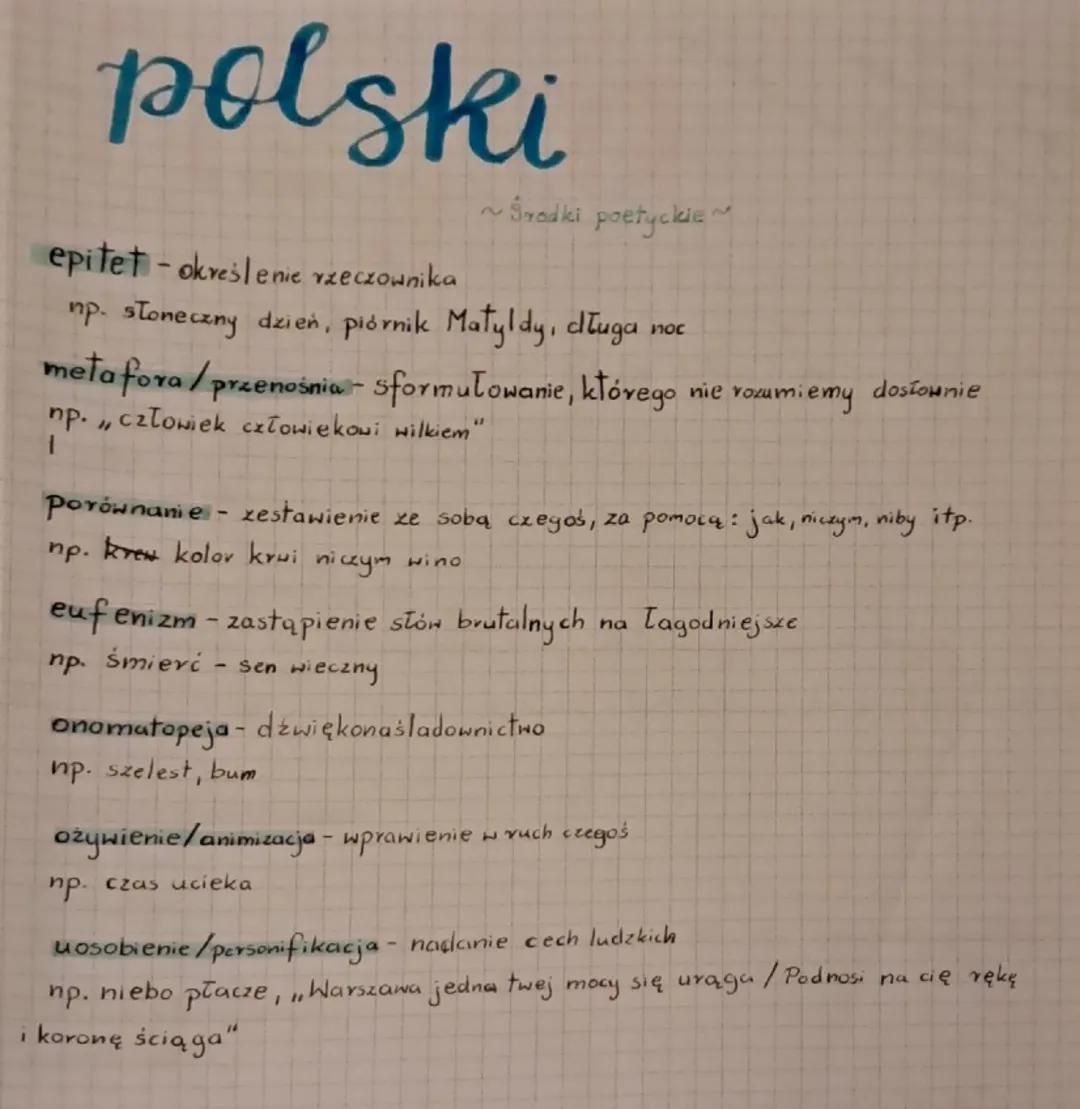 polski
~ Środki poetyckie ~
epitet - określenie rzeczownika
np. słoneczny dzień, piórnik Matyldy, długa noc
metafora/przenośnia - sformułowanie, którego nie rozumiemy dosłownie
np. „człowiek człowiekowi wilkiem"
porównanie - zestawienie ze sobą czegoś, za pomocą: jak, niczym, niby itp.
np. krew kolor krwi niczym wino
eufenizm - zastąpienie słów brutalnych na łagodniejsze
np. śmierć - sen wieczny
onomatopeja - dźwiękonaśladownictwo
np. szelest, bum
ożywienie/animizacja - wprawienie w ruch czegoś
np. czas ucieka
uosobienie/personifikacja - nadanie cech ludzkich
np. niebo płacze, „Warszawa jedna twej mocy się urąga / Podnosi na cię rękę
i koronę ściąga"